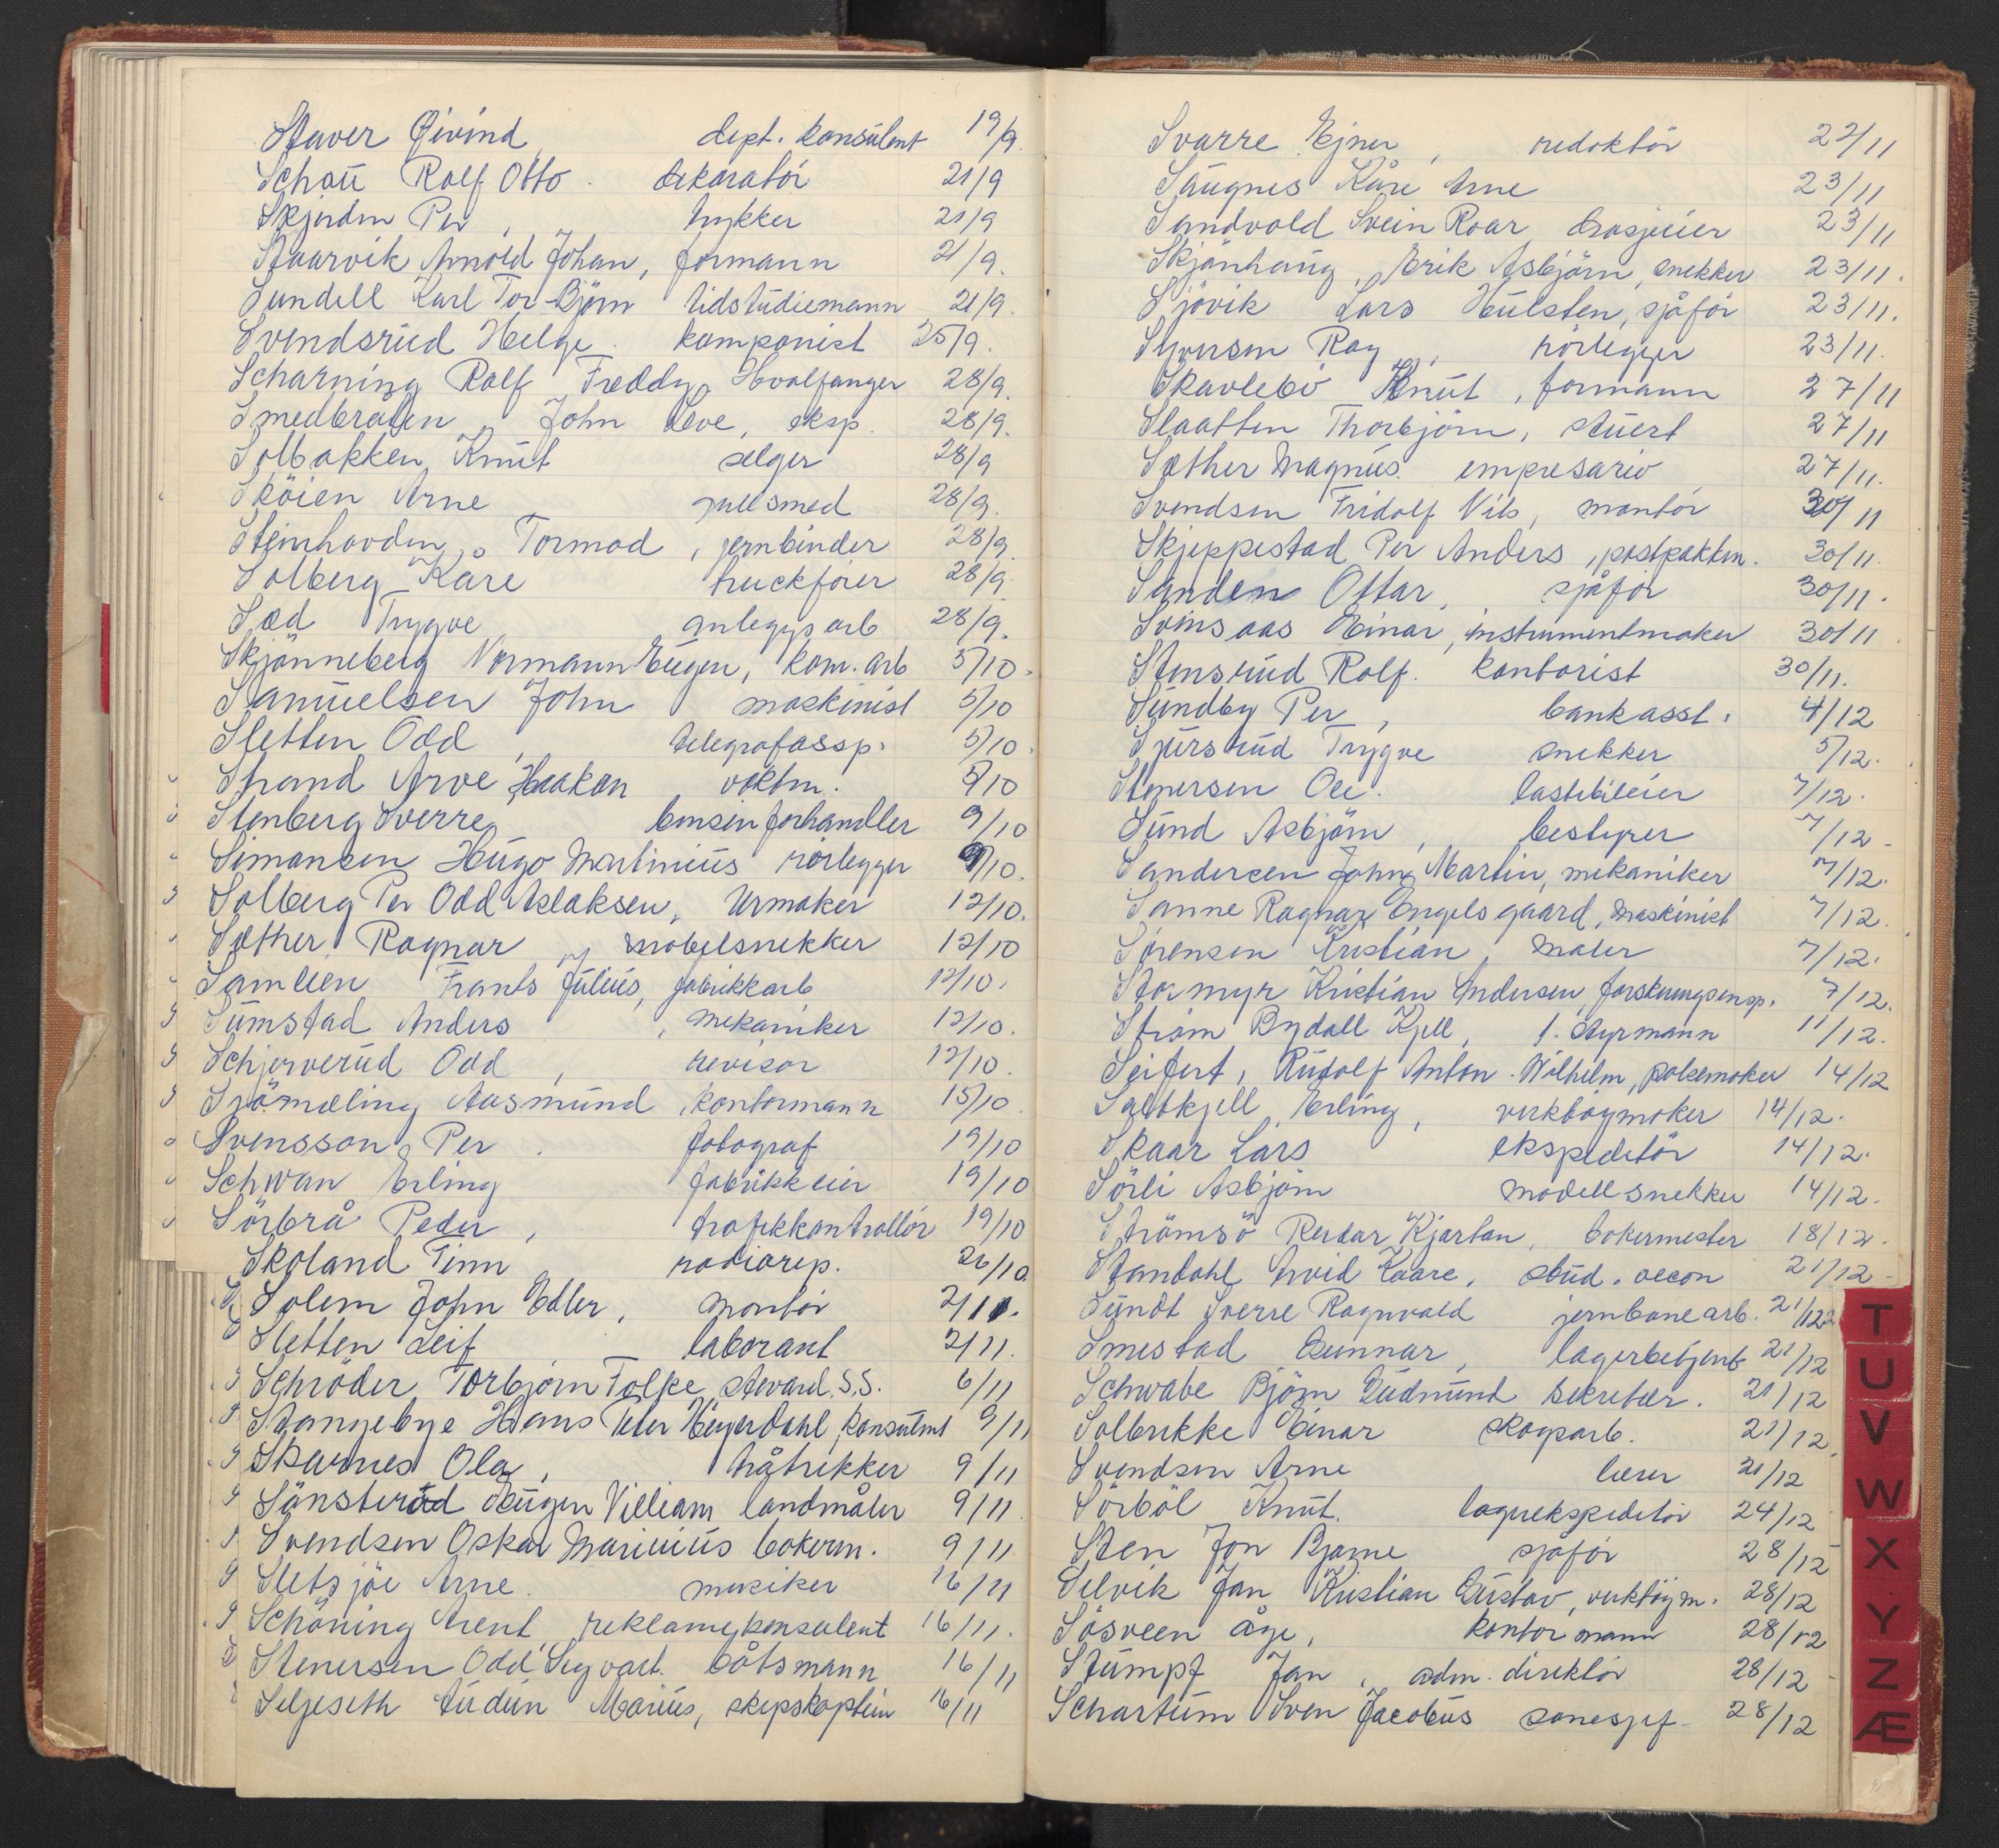 Staver Øivind, dept. konsulent 19/9.
Schou Rolf Otto. dekoratör 21/9
Skjerden Per, trykker 21/9
Staarvik Arnold Johan, formann 21/9.
Sundell Karl Tor-Björn tidstudiemann 21/9.
Svendsrud Helge. komponist 25/9.
Scharning Rolf Freddy Hvalfanger 28/9.
Smedbråten, John Leve, eksp. 28/9.
Solbakken, Knut selger 28/9
Sköien Arne gullsmed 28/9.
Steinhovden, Tormod, jernbinder 28/9
Solberg Kåre truckförer 28/9.
Sæd Trygve anleggsarb 28/9.
Skjönneberg Normann Eugen, kom. arb 5/10.
Samuelsen John maskinist 5/10
Sletten Odd, telegrafassp. 5/10.
Strand Arve Haakon vaktm. 5/10
Stenberg Sverre bensinforhandler 9/10
Simonsen Hugo Martinius rörlegger 9/10.
Solberg Per Odd Aslaksen, Urmaker 12/10.
Sæther, Ragnar, möbelsnekker 12/10
Samuen Frants Julius, fabrikkarb 12/10.
Sumstad Anders, mekaniker 12/10.
Schjerverud Odd, revisor 12/10.
Strömæling Aasmund, kontormann 15/10.
Svensson, Per. fotograf 19/10
Schwan Erling fabrikkeier 19/10
Sörbrå Peder, trafikkkontrollör 19/10
Skoland Finn radiorep. 26/10.
Solem John Edler, montör 2/11.
Sletten Leif laborant 2/11.
Schröder, Torbjörn Folke, steward. S.S. 6/11
Stangebye Hans Peter Heyerdahl, konsulent 9/11
Skarnes Ola, tråtrekker 9/11
Sönsterud Eugen Villiam landmåler 9/11
Svendsen Oskar Marinius bokerm. 9/11
Sletsjöe Arne. musiker 16/11
Schöning Arent, reklamekonsulent 16/11.
Stenersen Odd Sigvart. båtsmann 16/11
Seljeseth Audun Marius, skipskaptein 16/11
Svarre Ejner, redaktör 22/11
Saugnes Kåre Arne 23/11
Sandvold Svein Roar, drosjeeier 23/11
Skjönhaug, Erik Asbjörn, snekker 23/11.
Sjövik Lars Hulsten, sjåför 23/11.
Syversen Roy, rörlegger 23/11.
Skavlebö Knut, formann 27/11
Slaatten Thorbjörn, stuert 27/11
Sæther Magnus. empresario 27/11.
Svendsen Fridolf Nils, montör 30/11
Skjeppestad Per Anders, postpakkm. 30/11.
Sanden Ottar, sjåför 30/11.
Svinsaas Einar, instrumentmaker 30/11
Stensrud Rolf. kontorist 30/11.
Sundby Per, bankasst. 4/12
Sjursrud Trygve snekker 5/12.
Stenersen Ole. lastebileier 7/12.
Sund Asbjörn, bestyrer 7/12
Sandersen John Martin, mekaniker 7/12.
Sanne Ragnar Engelsgaard, maskinist 7/12.
Sörensen Kristian, maler 7/12.
Stormyr Kristian Andersen forsikringsinsp. 7/12.
Ström Bydall Kjell, 1. styrmann 11/12.
Seifert, Rudolf Anton. Wilhelm, pölsemaker 14/12
Saltkjell, Erling, verktöymaker 14/12.
Skaar Lars ekspeditör 14/12.
Sörli Asbjörn modellsnekker 14/12.
Strömsö Reidar Kjartan, bokermester 18/12.
Standahl Arvid Kaare, stud. oecon 21/12
Sundt Sverre Ragnvald jernbanearb. 21/12
Smestad Gunnar, lagerbetjent 21/12
Schwabe Björn Gudmund sekretær. 21/12
Solbrekke Einar skogsarb. 21/12.
Svendsen Arne lærer 21/12
Sörböl Knut. lagerekspeditör 24/12
Sten Jon Bjarne sjåför 28/12
Selvik Jan Kristian Gustav, verktöym. 28/12
Sösveen Åge, kontormann 28/12
Stumpf Jan, adm. direktör 28/12
Schartum Sven Jacobus sonesjef. 28/12
T
U
V
W
X
Y
Z
Æ